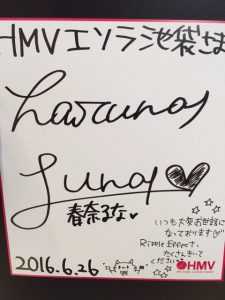 HMVエソラ池袋さま
Haruna
Luna♡
春奈るな♥
いつも大変お世話に
なっております♡
Ripple Effect、
たくさんきいて
ください
2016.6.26
HMV